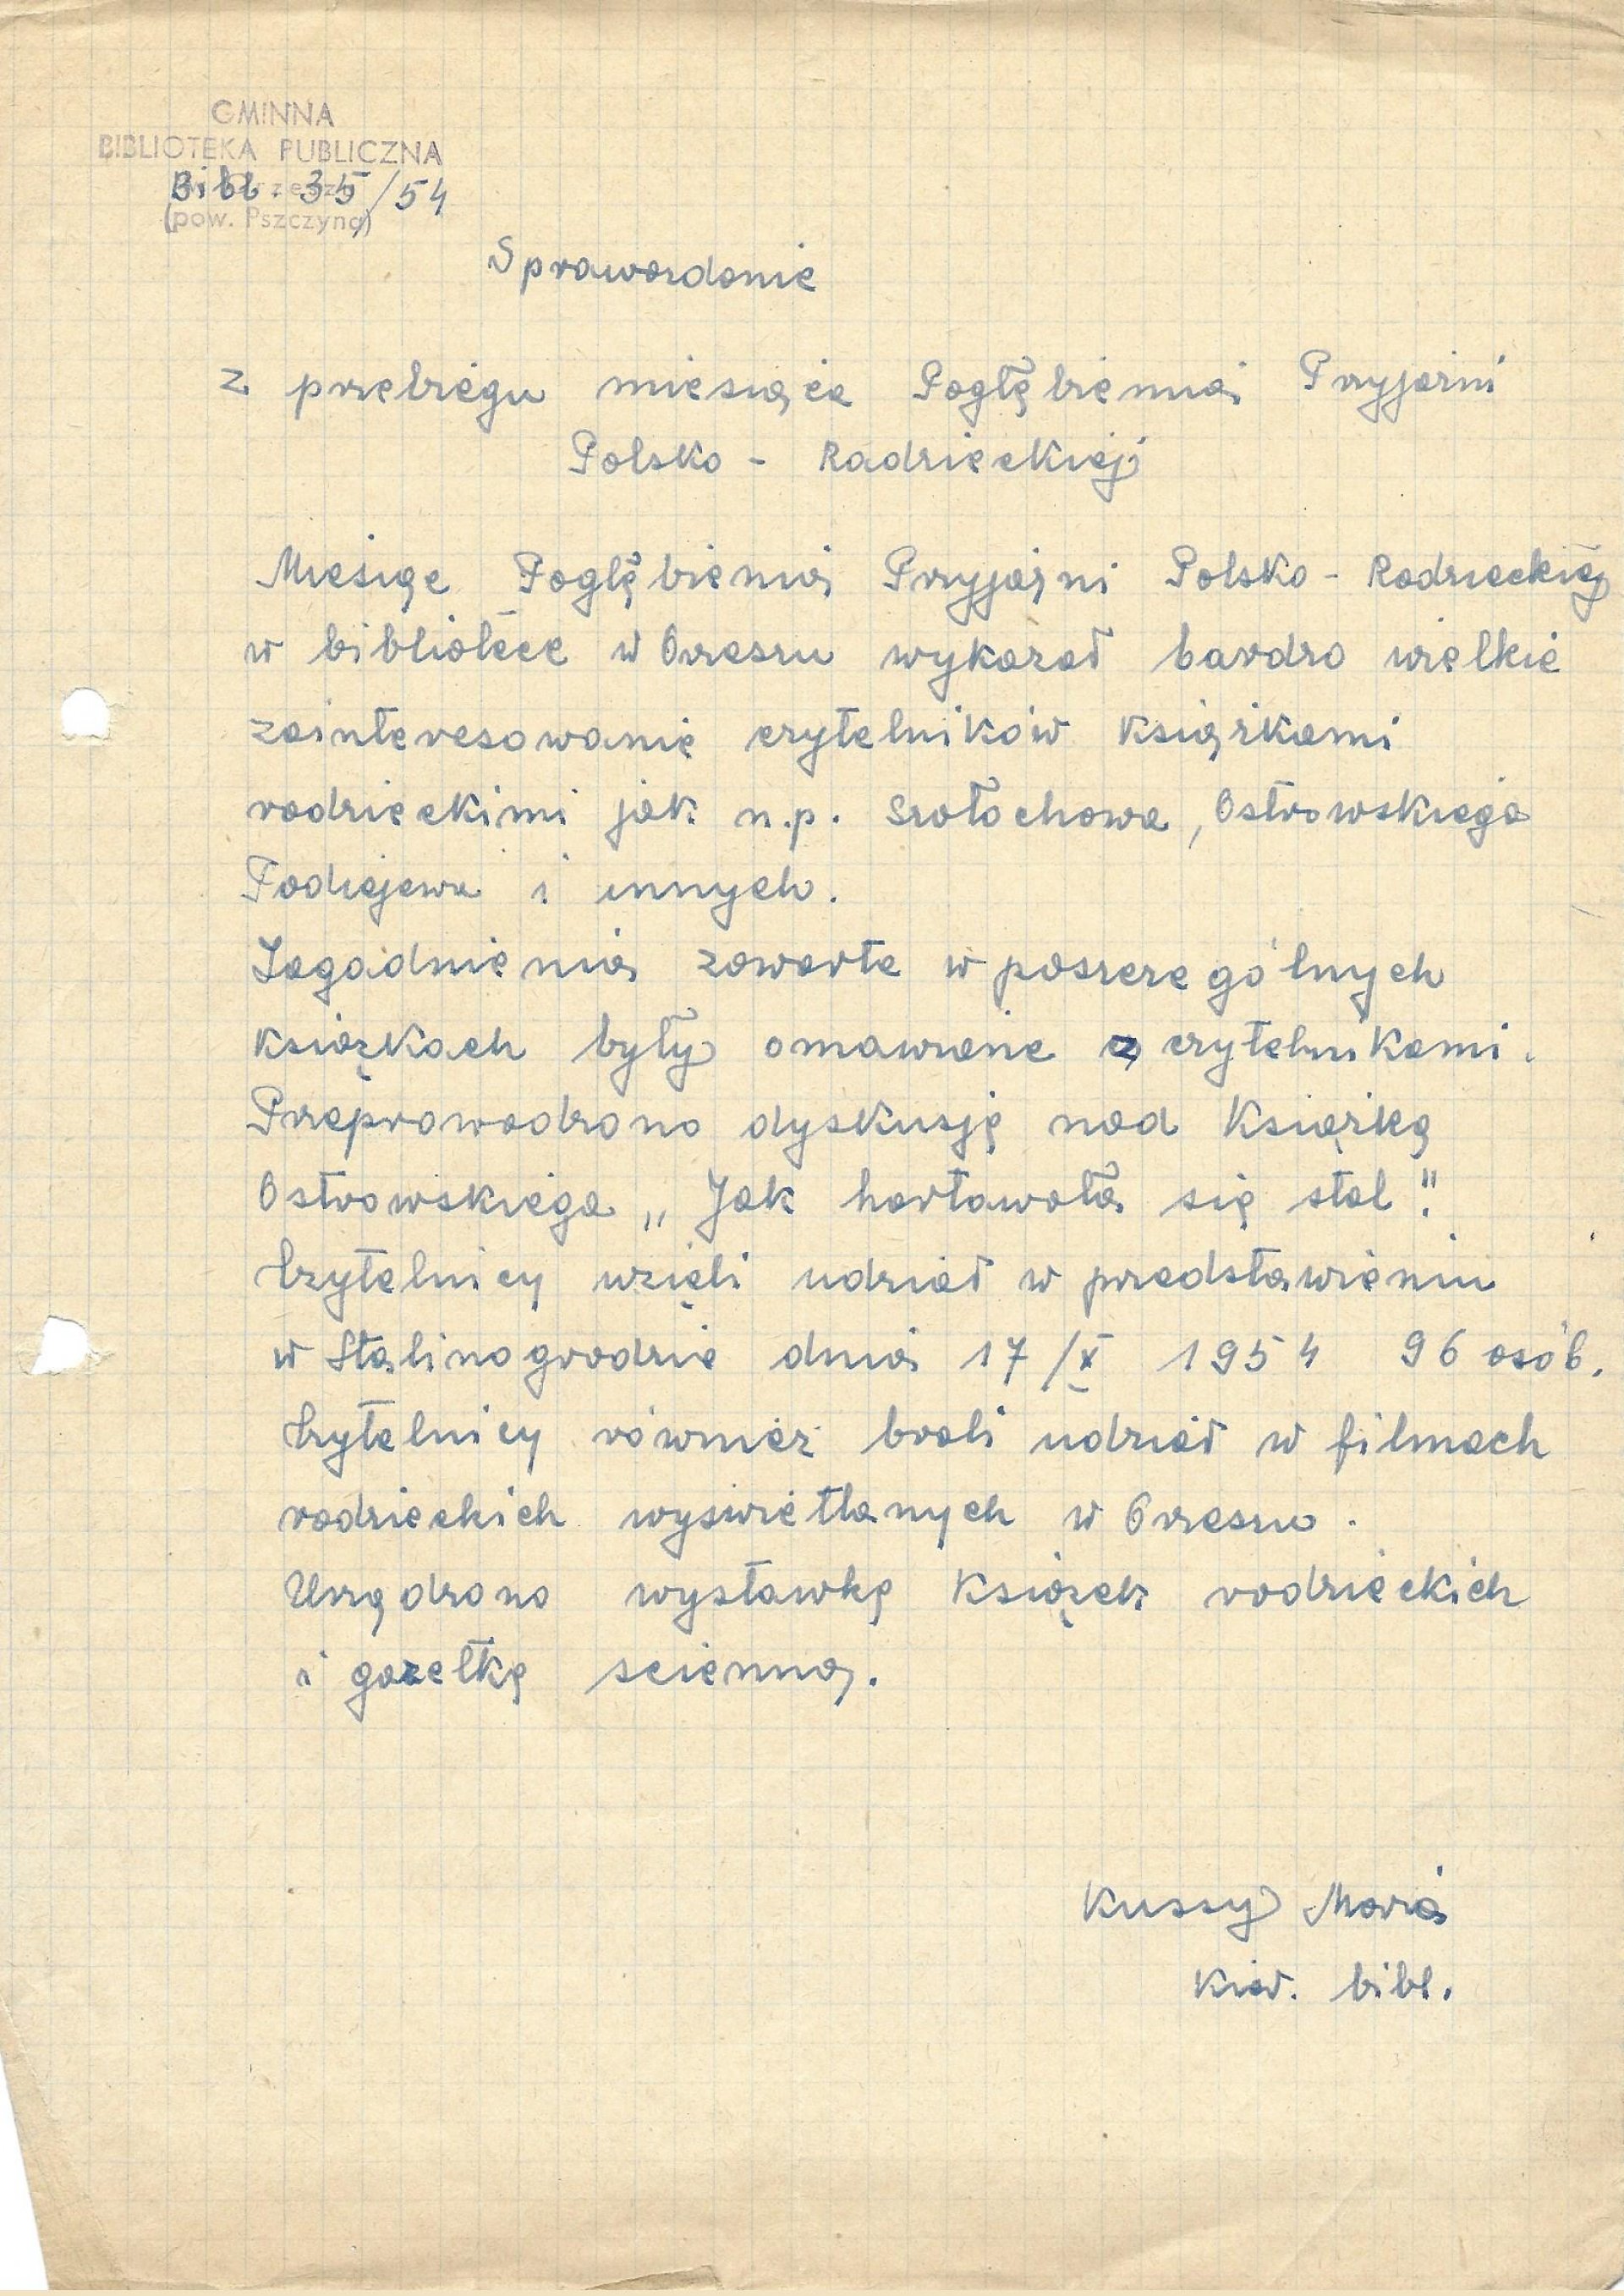 GMINNA
BIBLIOTEKA PUBLICZNA
Bibl. 35/54
(pow. Pszczyna)
Sprawozdanie
z przebiegu miesiąca Pogłębienia Przyjaźni
Polsko - Radzieckiej
Miesiąc Pogłębienia Przyjaźni Polsko - Radzieckiej
w bibliotece w Orzeszu wykazał bardzo wielkie
zainteresowanie czytelników książkami
radzieckimi jak n.p. Szołochowa, Ostrowskiego
Fadiejewa i innych.
Zagadnienia zawarte w poszczególnych
książkach były omawiane z czytelnikami.
Przeprowadzono dyskusję nad książką
Ostrowskiego „Jak hartowała się stal".
Czytelnicy wzięli udział w przedstawieniu
w Stalinogrodzie dnia 17/X 1954 96 osób.
Czytelnicy również brali udział w filmach
radzieckich wyświetlanych w Orzeszu.
Urządzono wystawkę książek radzieckich
i gazetkę scienną.
Kussy Maria
Kier. bibl.